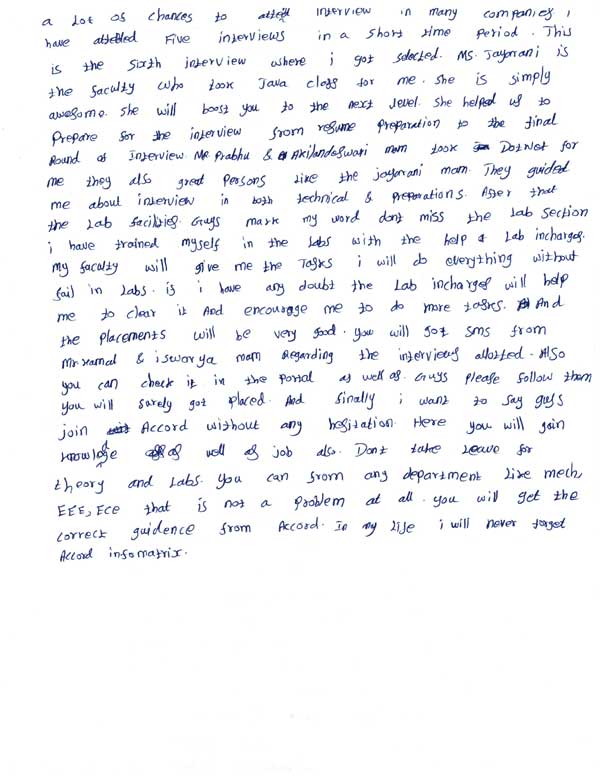 a Lot of chances to attend Interview in many companies, i
have attended Five interviews in a short time period. This
is the sixth interview where i got selected. Ms. Jayarani is
the faculty who took Java class for me. she is simply
awesome. she will boost you to the next level. she helped us to
Prepare for the interview from resume Preparation to the final
Round of Interview. Mr Prabhu & Akilandeswari mam took DotNet for
me they also great Persons like the jayarani mam. They guided
me about interview in both technical & Preparations. After that
the Lab facilities. Guys mark my word dont miss the Lab section
i have trained myself in the Labs with the help of Lab incharges.
my faculty will give me the Tasks i will do everything without
fail in Labs. if i have any doubt the Lab incharges will help
me to clear it And encourage me to do more tasks. And
the placements will be very good. you will got sms from
Mr. Kamal & iswarya mam Regarding the interviews allotted. Also
you can check it in the Portal as well as. Guys Please follow them
you will surely got placed. And finally i want to say guys
join Accord without any hesitation. Here you will gain
knowladge as well as job also. Dont take Leave for
theory and Labs. you can from any department like mech,
EEE, ECE that is not a Problem at all. you will get the
correct guidence from Accord. In my life i will never forget
Accord infomatrix.